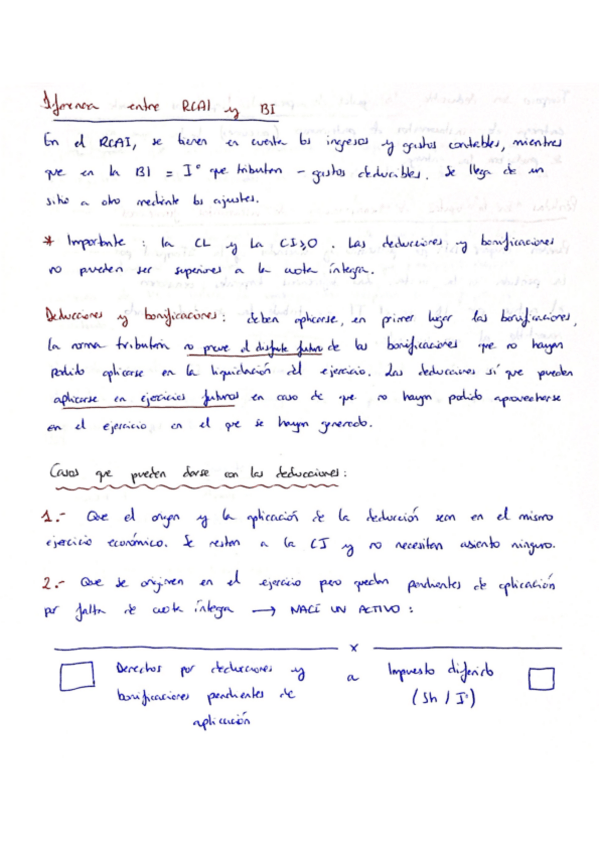 Diferencia entre RCAI y BI
En el RCAI, se tienen en cuenta los ingresos y gastos contables, mientras
que en la BI = Iº que tributan - gastos deducibles. Se llega de un
sitio a otro mediante los ajustes.
* Importante : la CL y la CI ≥ 0 . Las deducciones y bonificaciones
no pueden ser superiores a la cuota íntegra.
Deducciones y bonificaciones: deben aplicarse, en primer lugar las bonificaciones,
la norma tributaria no prevé el disfrute futuro de las bonificaciones que no hayan
podido aplicarse en la liquidación del ejercicio. Las deducciones sí que pueden
aplicarse en ejercicios futuros en caso de que no hayan podido aprovecharse
en el ejercicio en el que se hayan generado.
Casos que pueden darse con las deducciones:
1.- Que el origen y la aplicación de la deducción sean en el mismo
ejercicio económico. Se restan a la CI y no necesitan asiento ninguno.
2.- Que se originen en el ejercicio pero quedan pendientes de aplicación
por falta de cuota íntegra → NACE UN ACTIVO :
x
Derechos por deducciones y a Impuesto diferido
bonificaciones pendientes de (Sh / Iº)
aplicación